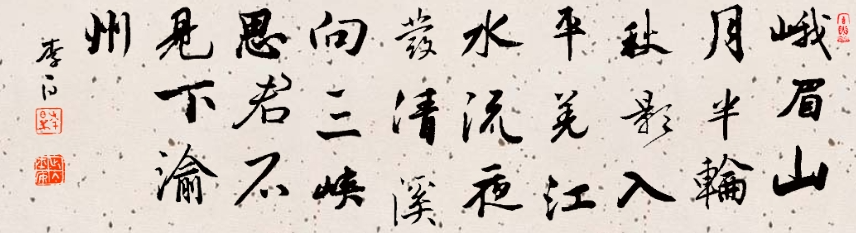 峨眉山
月半輪
秋影入
平羌江
水流夜
發清溪
向三峽
思君不
見下渝
州
李白